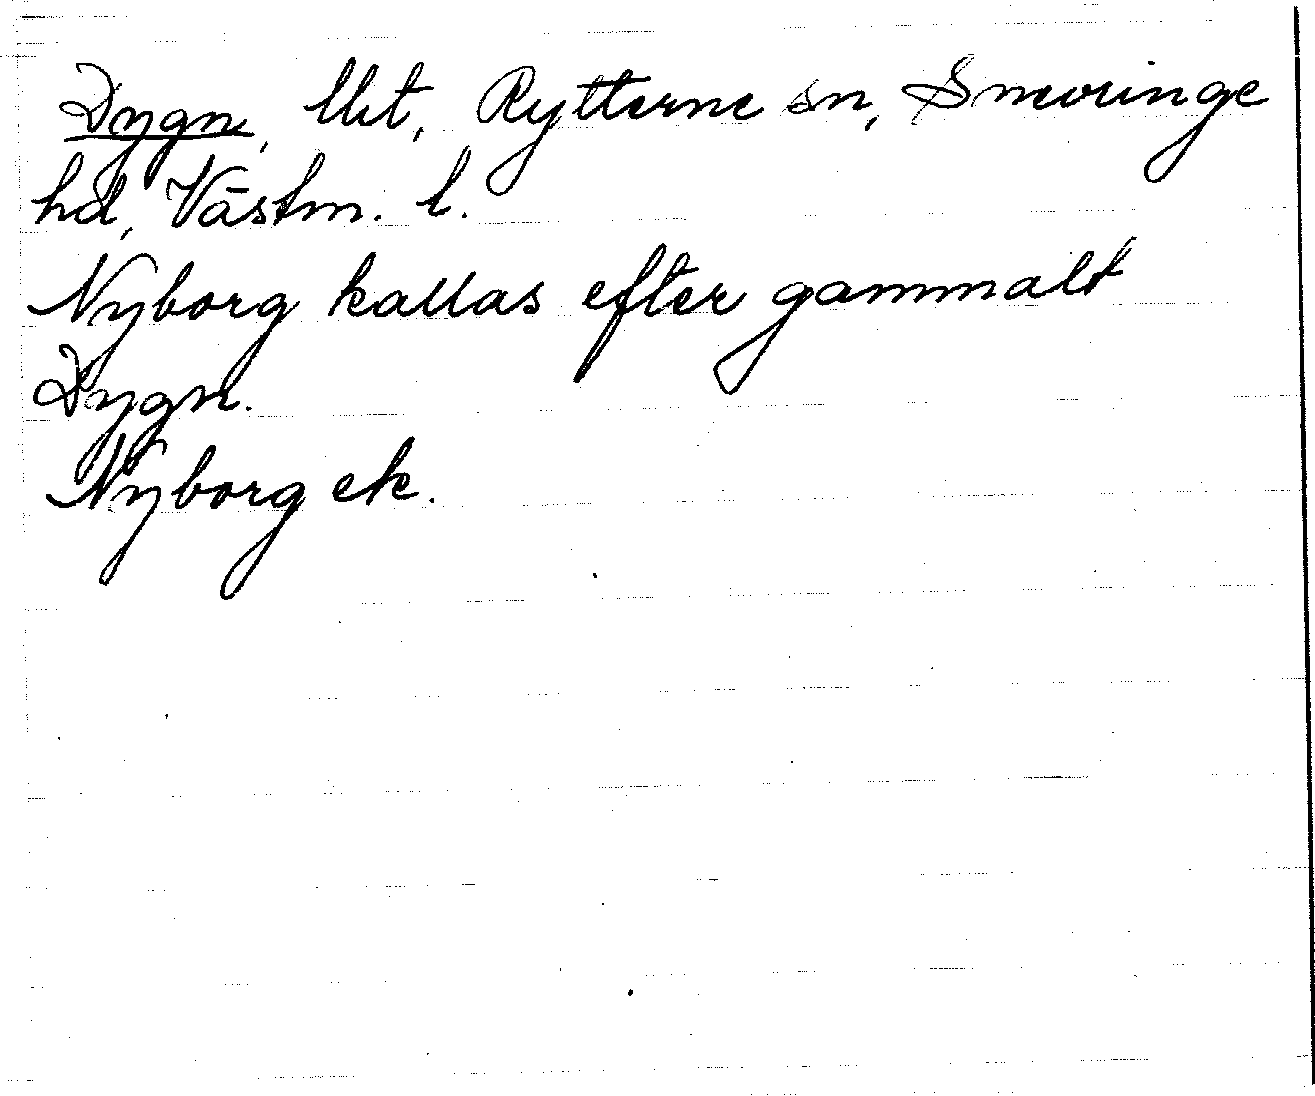 Dygn, lht, Rytterne sn, Snevringe
hd, Västm. l.
Nyborg kallas efter gammalt
Dygn.
Nyborg ek.